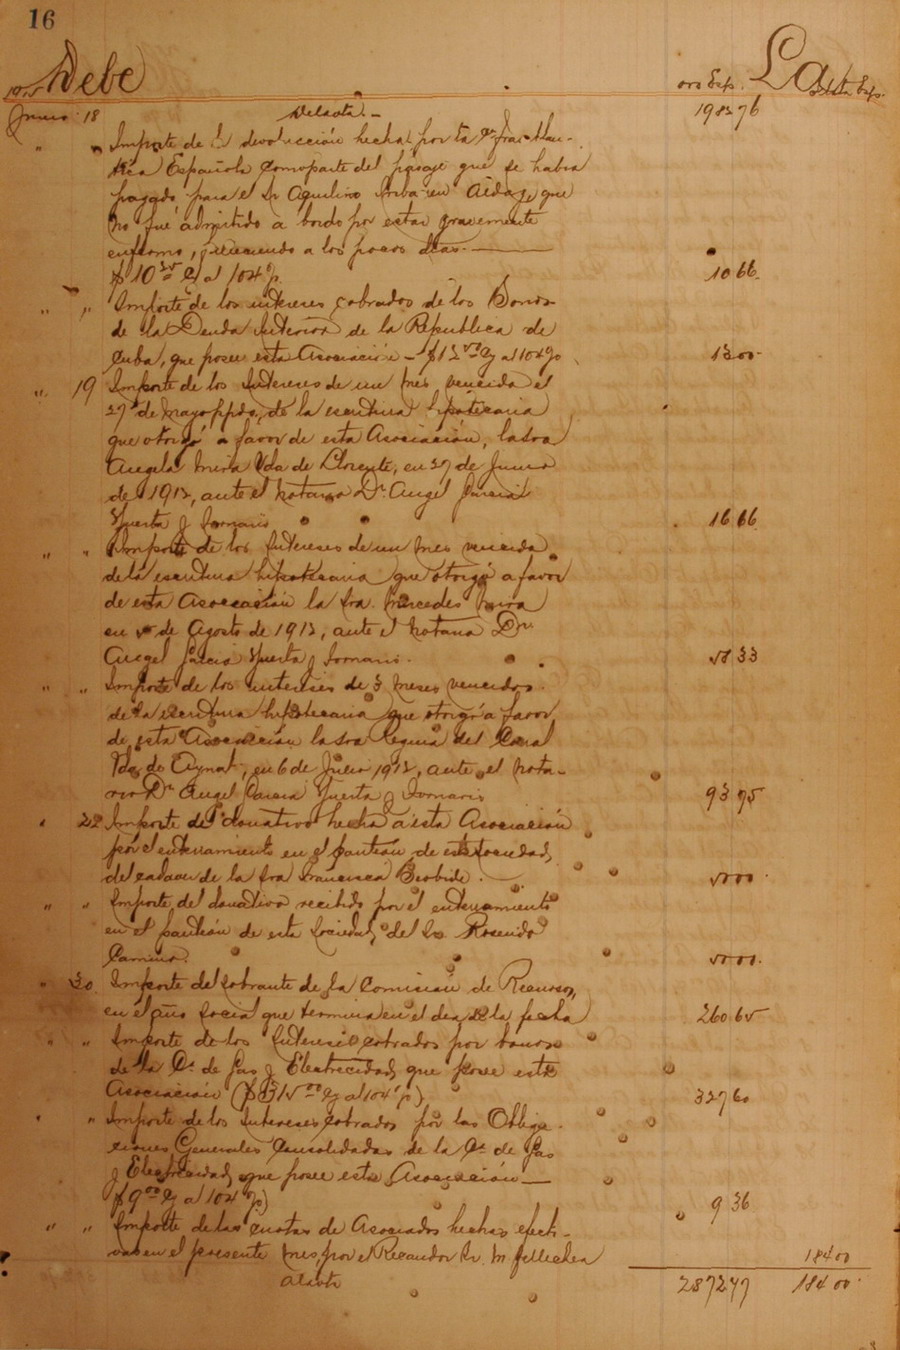 16
Debe
oro Esp. La Plata Esp.
Junio 18 Delavta.- 198376
" " Importe de la devolución hecha por la Cª Trasatlan-
tica Española como parte del pasaje que se había
pagado para el Sr Aquilino que
no fué admitido a bordo por estar gravemente
enfermo, falleciendo a los pocos días.
$10 25 al 104 p. 10 66.
" " Importe de los intereses cobrados de los Bonos
de la Deuda Interior de la Republica de
Cuba, que posee esta Asociación - al 104 %
" 19 Importe de los Intereses de un mes, vencido el
27 de mayo ppdo, de la escritura hipotecaria
que otorgó a favor de esta Asociación, la Sra
Angela Mira Vda de Llorente, en 27 de Junio
de 1912, ante el Notario Dr Angel Garcia
Huerta y Fornaris 16 66
" " Importe de los Intereses de un mes vencido
de la escritura hipotecaria que otorgó a favor
de esta Asociación la Sra. Mercedes Mira
en de Agosto de 1912, ante el Notario Dn
Angel Garcia Huerta y Fornaris. 33
" " Importe de los intereses de 3 meses vencidos
de la escritura hipotecaria que otorgó a favor
de esta Asociación la Sra Regina del Corral
Vda de Aymat, en 6 de Junio 1912, ante el Nota-
rio Dr Angel Garcia Huerta y Fornaris 93 75
" 22 Importe del donativo hecho a esta Asociación
por el enterramiento en el panteón de esta Sociedad,
del cadaver de la Sra Francisca
" " Importe del donativo recibido por el enterramiento
en el panteón de esta Sociedad, del Sr. Rosendo
Camino.
" 30. Importe del sobrante de la Comisión de Recursos,
en el año social que termina en el dia de la fecha 260 65
" " Importe de los Intereses cobrados por bonos
de la Cª de Gas y Electricidad, que posee esta
Asociación ($315 00 al 104 p) 327 60
" " Importe de los Intereses cobrados por las Obliga-
ciones Generales Consolidadas de la Cª de Gas
y Electricidad, que posee esta Asociación
$9 00 al 104 %) 9 36
" " Importe de las cuotas de Asociados hechas efecti-
vas en el presente mes, por el Recaudor Sr. M. 184 00
Alavta 287247 184 00.